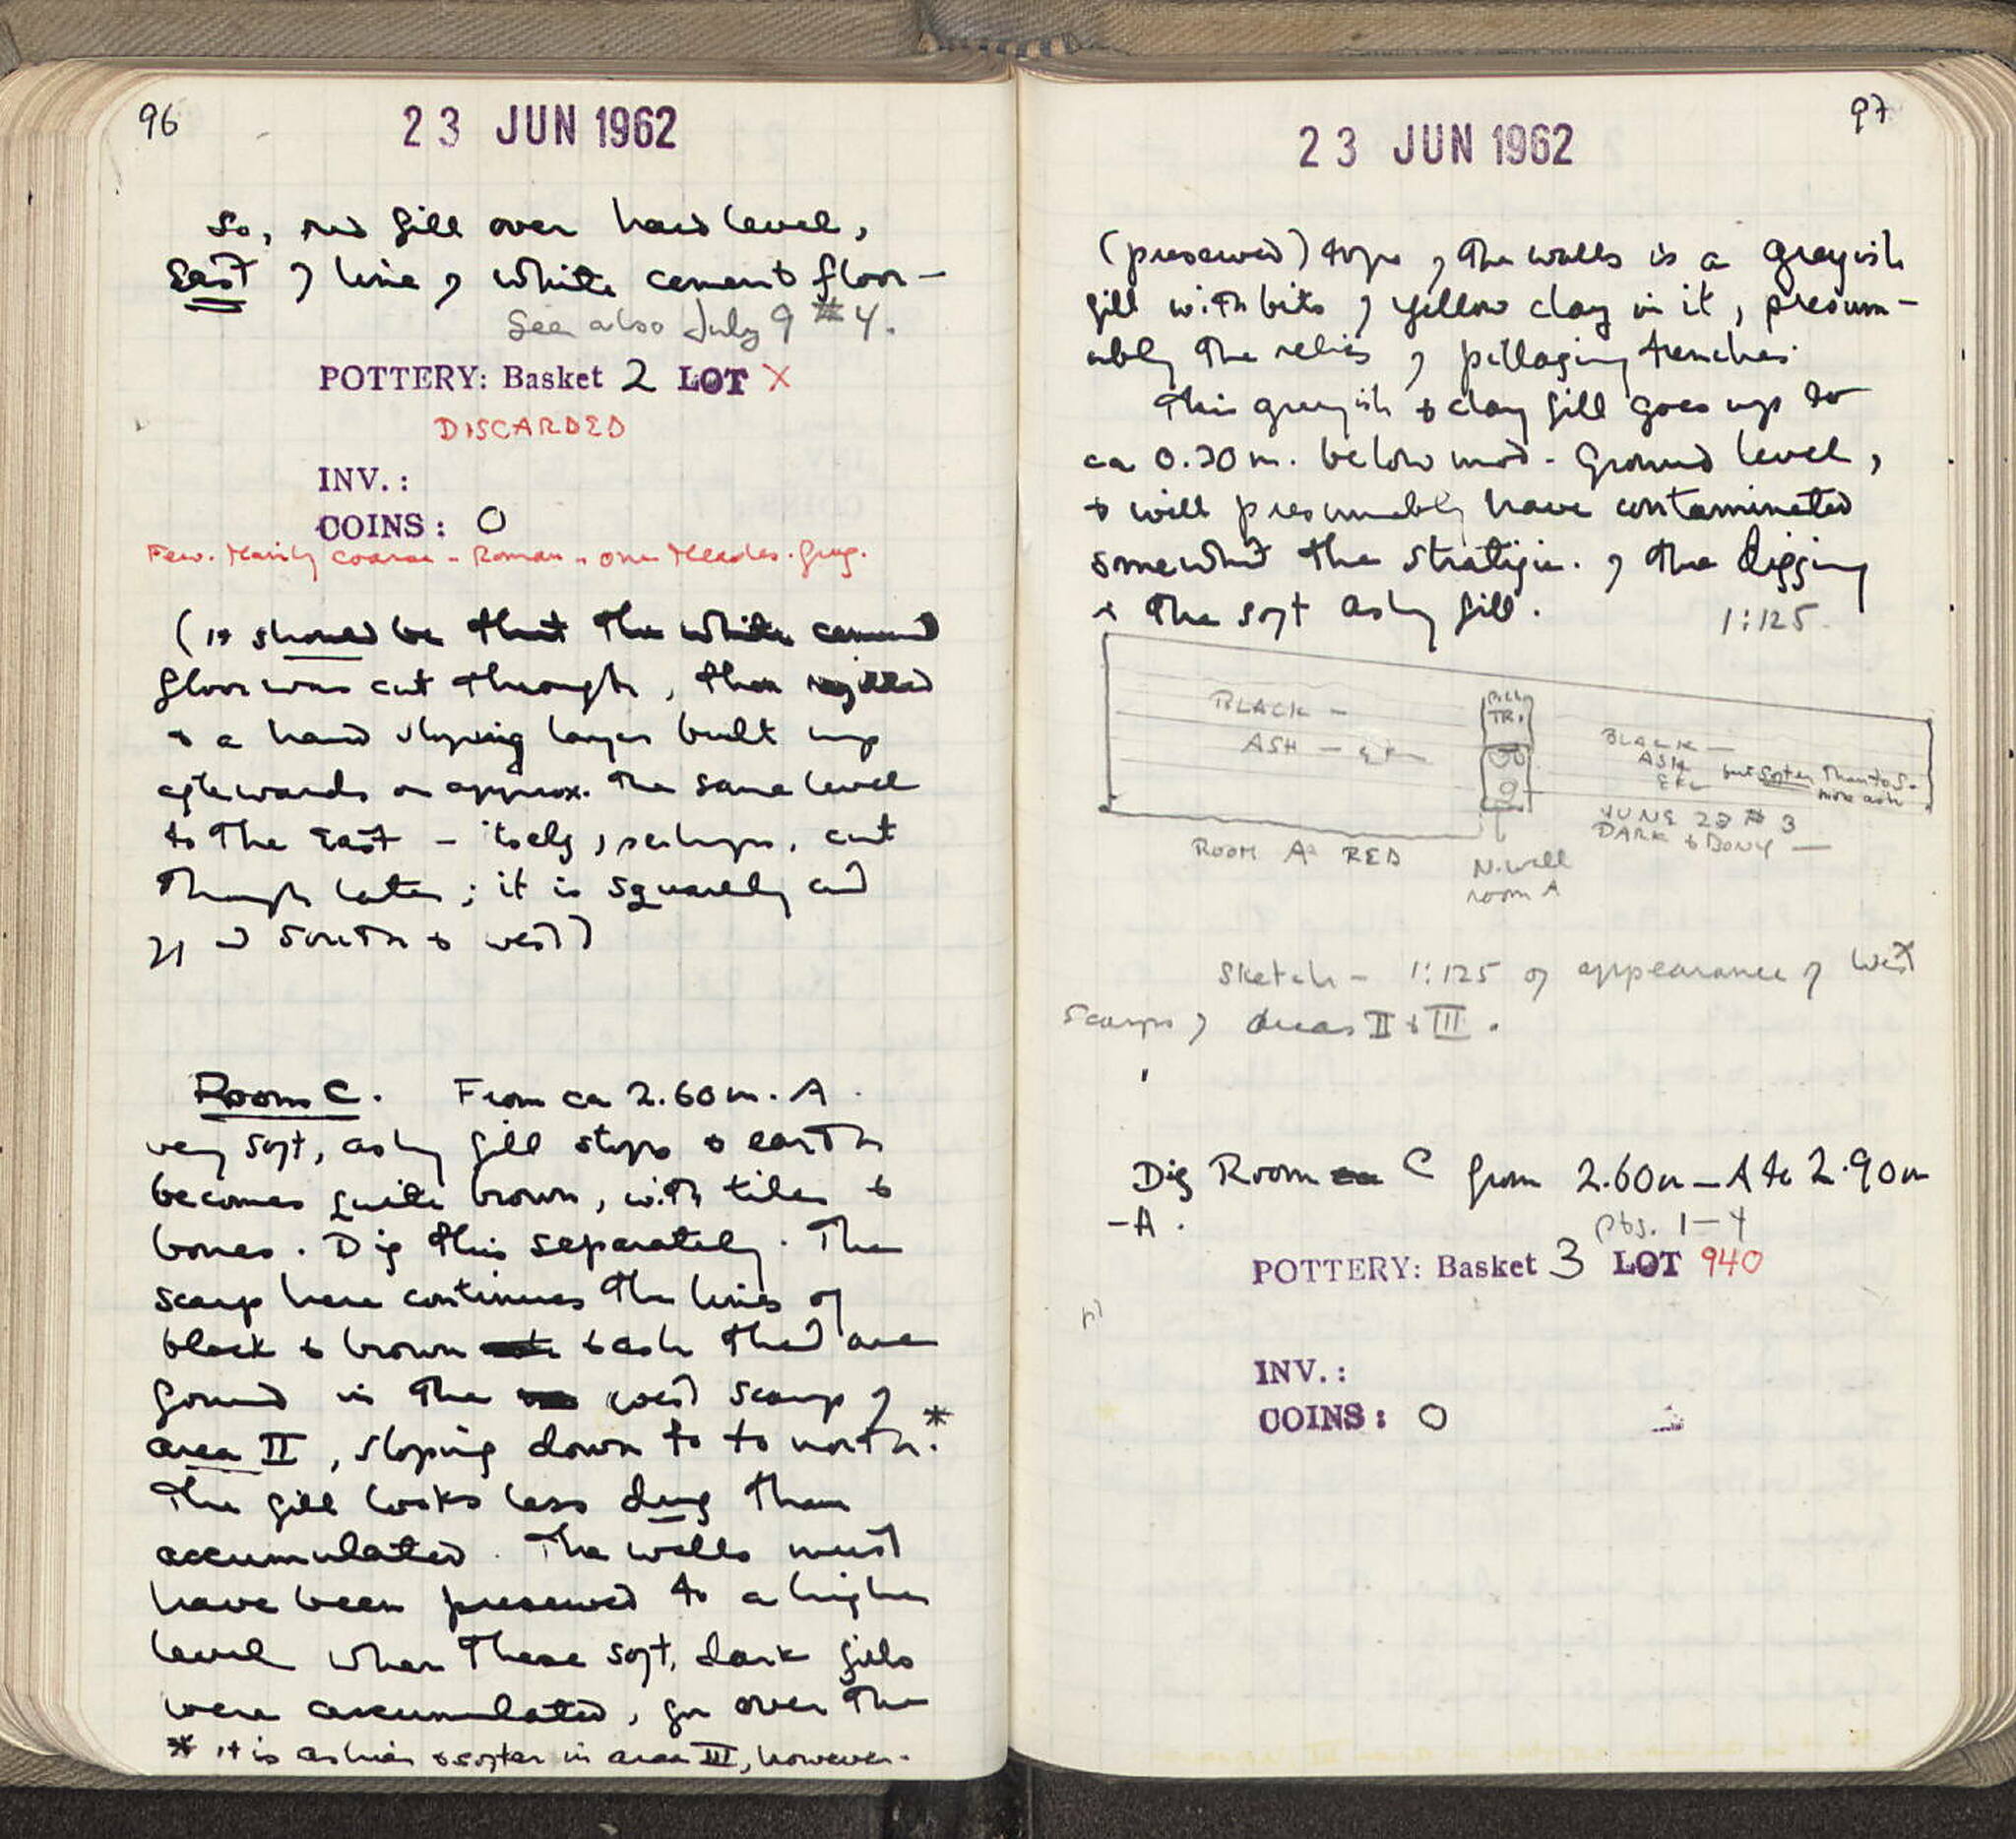 96
23 JUN 1962
So, red fill over hard level,
East of line of white cement floor –
See also July 9 #4.
POTTERY: Basket 2 LOT X
DISCARDED
INV.:
COINS: 0
Few. Mainly coarse – Roman – one
(it should be that the white cement
floor was cut through, then refilled
& a hard sloping layer built up
afterwards on approx. the same level
to the East – itself, perhaps, cut
through later; it is squarely cut
off to South & west)
Room C. From ca 2.60 m. A
very soft, ashy fill stops & earth
becomes quite brown, with tiles &
bones. Dig this separately. The
scarp here continues the lines of
black & brown & ash that are
found in the west scarp of
area II, sloping down to to north.*
The fill looks less dug than
accumulated. The walls must
have been preserved to a higher
level when these soft, dark fills
were accumulated, for over the
* it is ashier & softer in area III, however.
97
23 JUN 1962
(preserved) tops of the walls is a greyish
fill with bits of yellow clay in it, presum-
ably the relics of pillaging trenches.
This greyish & clay fill goes up to
ca 0.30 m. below mod. ground level,
& will presumably have contaminated
somewhat the stratigr. of the digging
of the soft ashy fill.
1:125
BLACK –
ASH –
TR.
BLACK –
ASH
ETC
but softer than to S.
more ash
JUNE 23 # 3
DARK & BONY –
ROOM A RED
N. wall
room A
Sketch – 1:125 of appearance of West
Scarps of Areas II & III.
Dig Room C from 2.60 m – A to 2.90 m
– A.
pbs. 1–4
POTTERY: Basket 3 LOT 940
INV.:
COINS: 0